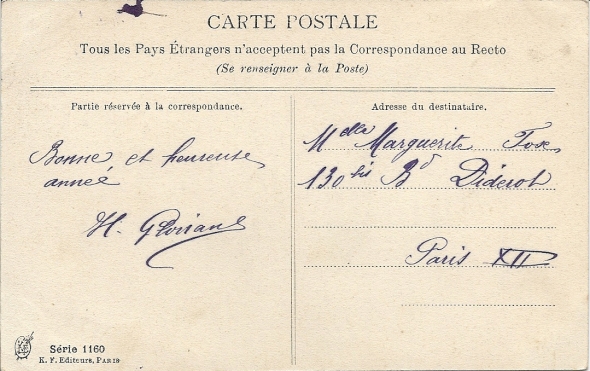 CARTE POSTALE
Tous les Pays Étrangers n'acceptent pas la Correspondance au Recto
(Se renseigner à la Poste)
Partie réservée à la correspondance.
Bonne et heureuse
année
H. Gloriand
Adresse du destinataire.
Melle Marguerite Fox
130bis Bd Diderot
Paris XII
Série 1160
K. F. Editeurs, PARIS